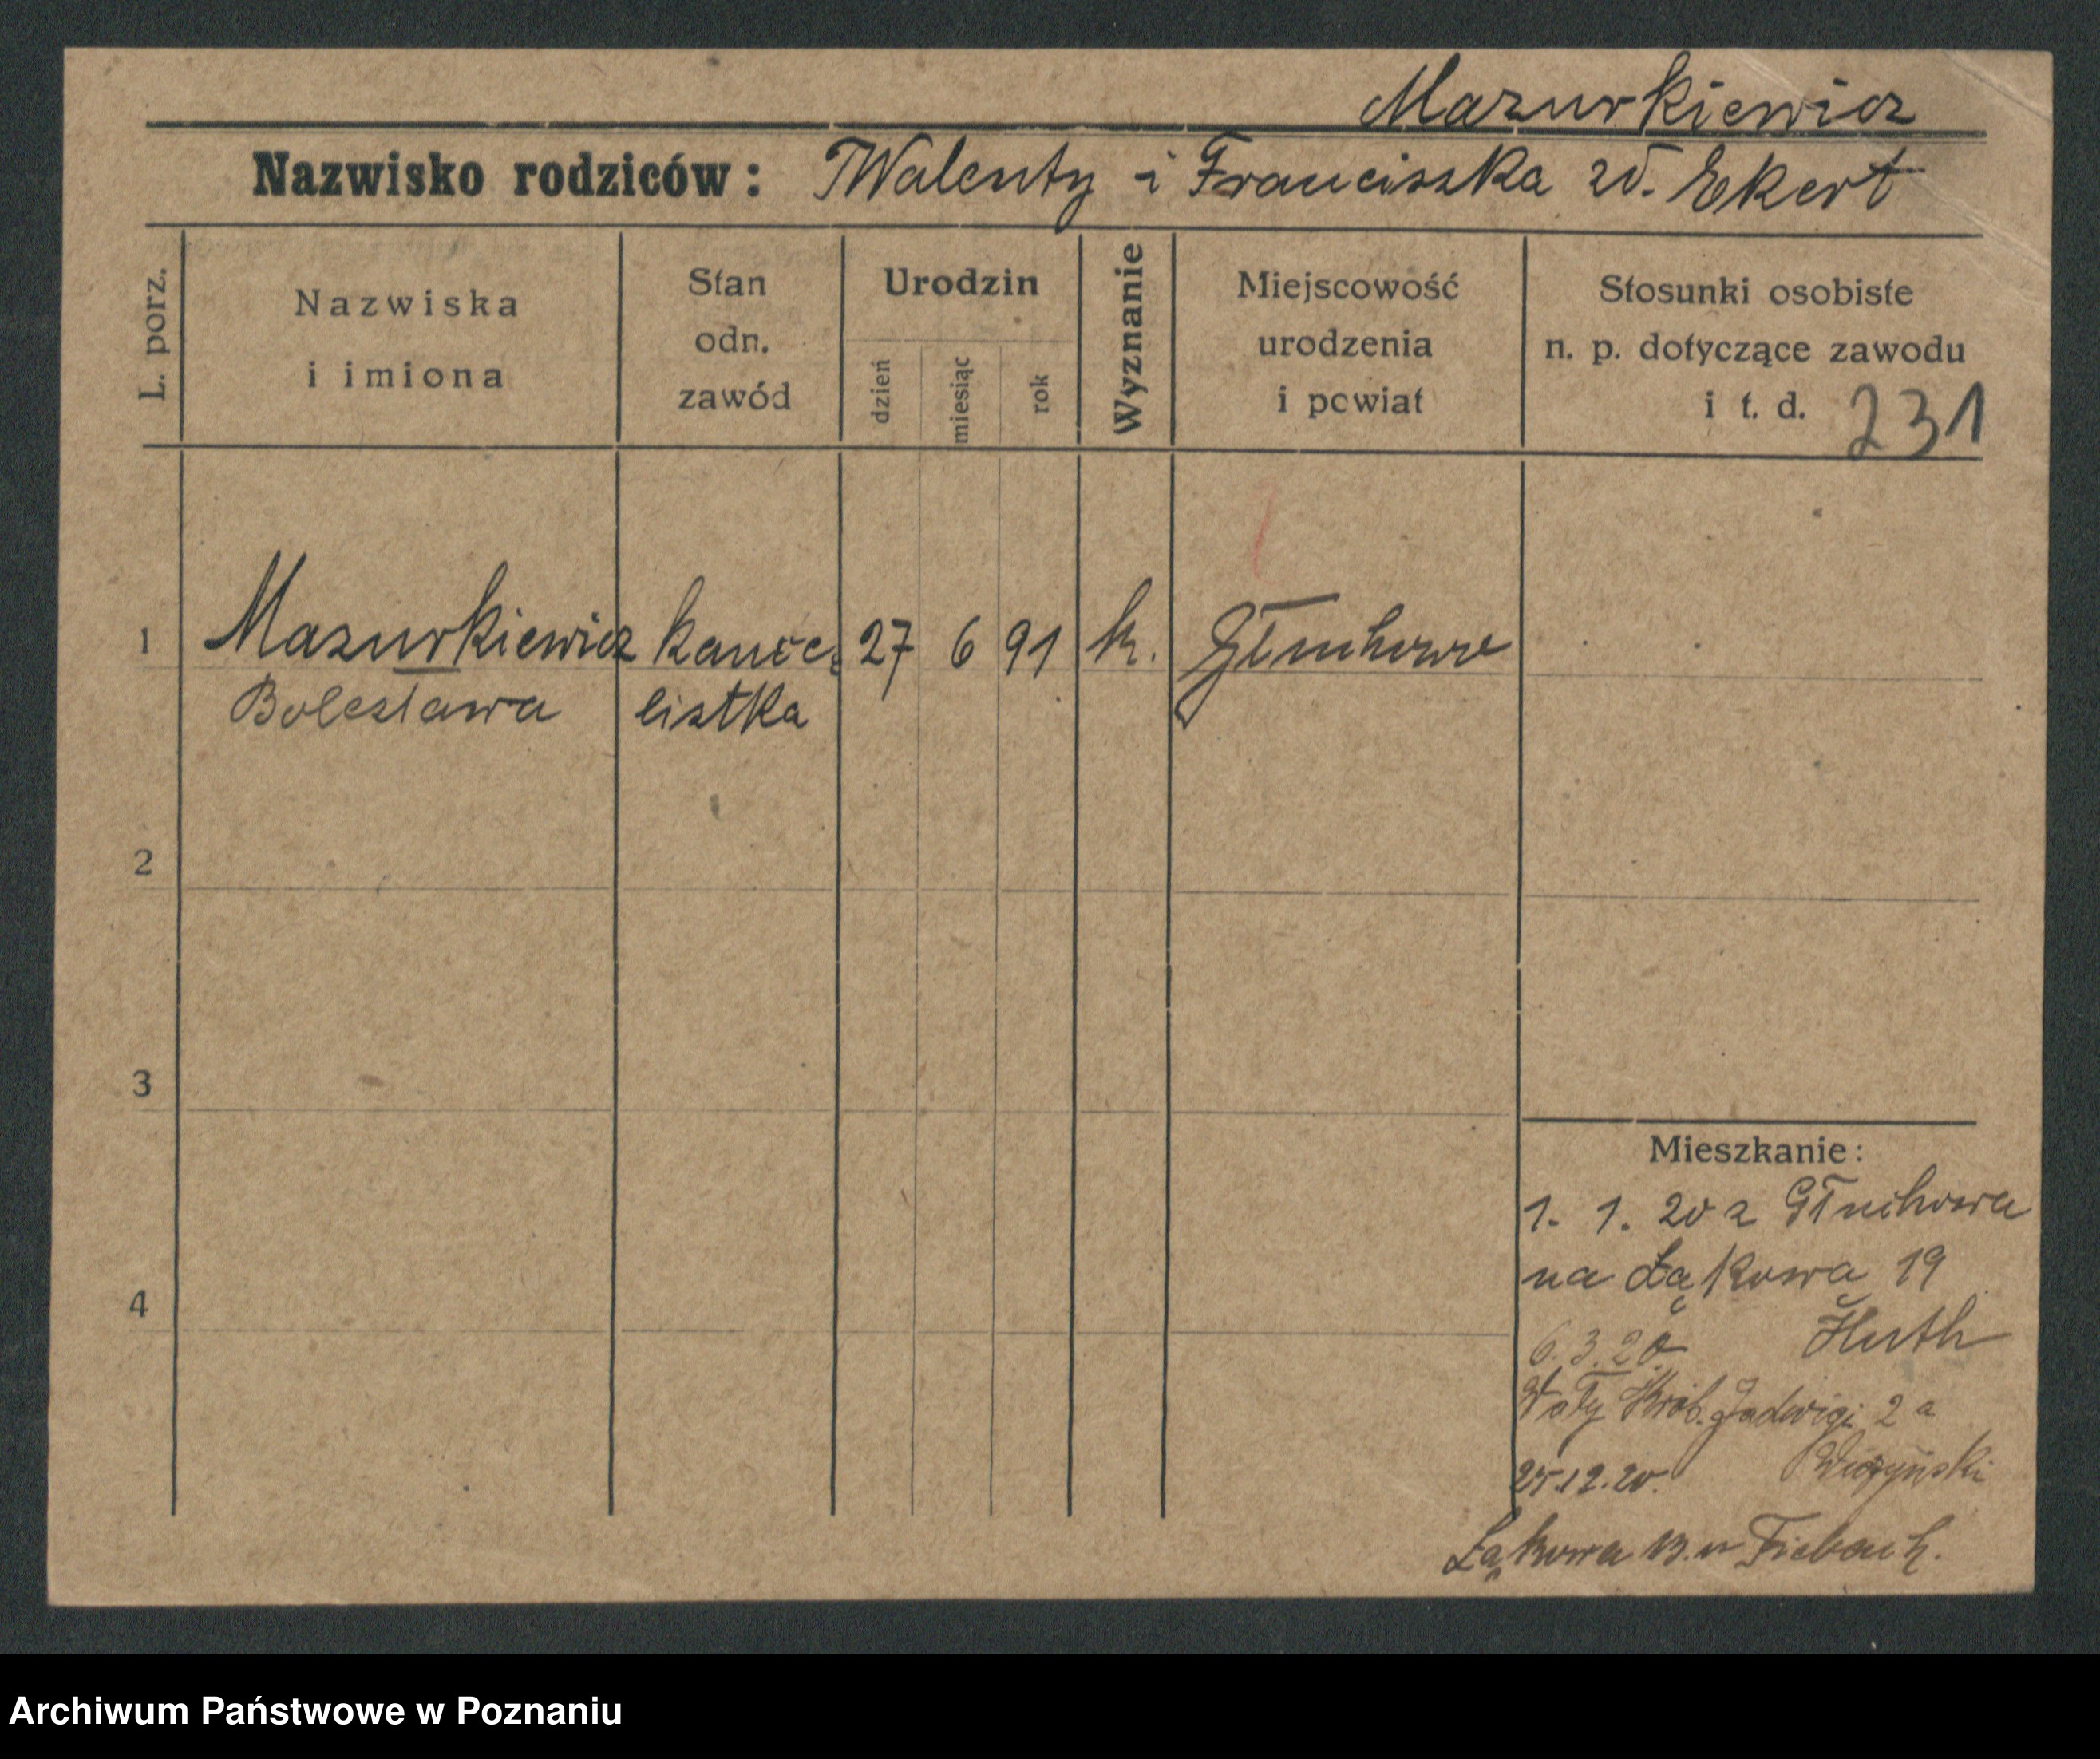 Mazurkiewicz
Nazwisko rodziców: Walenty i Franciszka zd. Ekert
L. porz.
Nazwiska
i imiona
Stan
odn.
zawód
Urodzin
dzień
miesiąc
rok
Wyznanie
Miejscowość
urodzenia
i powiat
Stosunki osobiste
n. p. dotyczące zawodu
i t. d. 231
1 Mazurkiewicz kance- 27 6 91 k. Głuchowo
Bolesława listka
2
3
4
Mieszkanie:
1. 1. 20 z Głuchowa
na Łąkową 19
Huth
6.3.20
Wały Król. Jadwigi 2a
25.12.20.
Łąkowa 13. u Fiebach.
Archiwum Państwowe w Poznaniu